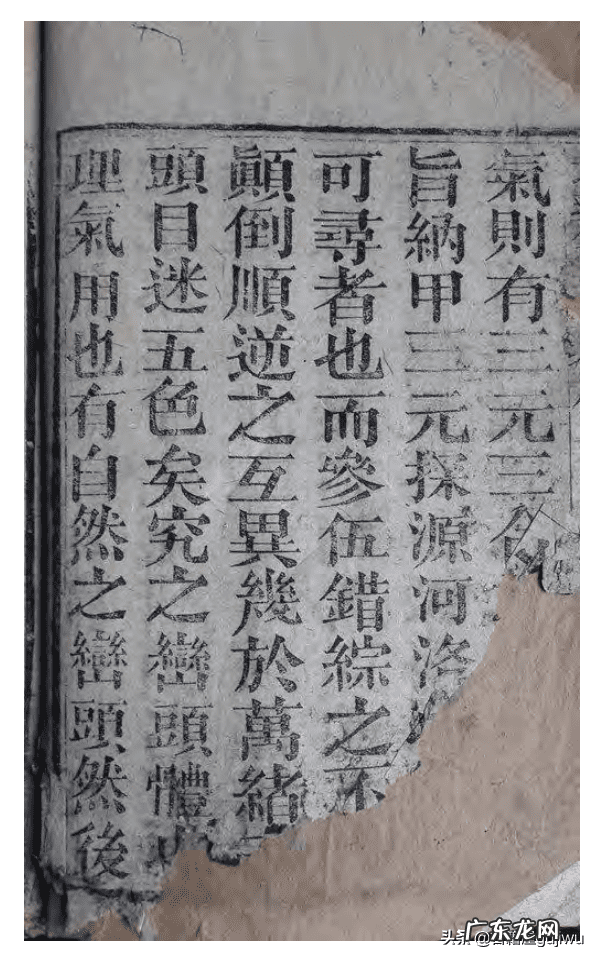 氣則有三元三合
旨納甲三元探源河洛
可尋者也而參伍錯綜之不
顚倒順逆之互異幾於萬緒
頭目迷五色矣究之巒頭體也
理氣用也有自然之巒頭然後
广东龙网
头条 @古籍屋gujwu